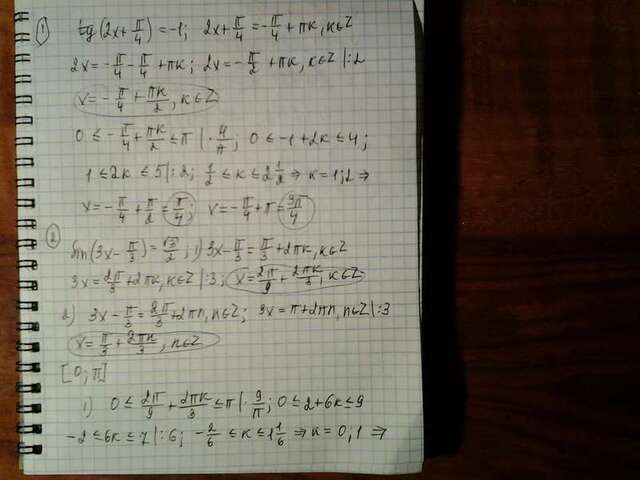 ① tg(2x+π/4)=-1; 2x+π/4=-π/4+πк, к∈Z
2x=-π/4-π/4+πк; 2x=-π/2+πк, к∈Z |:2
x=-π/4+πк/2, к∈Z
0≤-π/4+πк/2≤π |·4/π; 0≤-1+2к≤4;
1≤2к≤5|:2; 1/2≤к≤2 1/2 ⇒ к=1;2 ⇒
x=-π/4+π/2=π/4; x=-π/4+π=3π/4
② sin(3x-π/3)=√3/2; 1) 3x-π/3=π/3+2πк, к∈Z
3x=2π/3+2πк, к∈Z |:3; x=2π/9+2πк/3, к∈Z
2) 3x-π/3=2π/3+2πn, n∈Z; 3x=π+2πn, n∈Z|:3
x=π/3+2πn/3, n∈Z
[0;π]
1) 0≤2π/9+2πк/3≤π |·9/π; 0≤2+6к≤9
-2≤6к≤7 |:6; -2/6≤к≤1 1/6 ⇒ к=0;1 ⇒